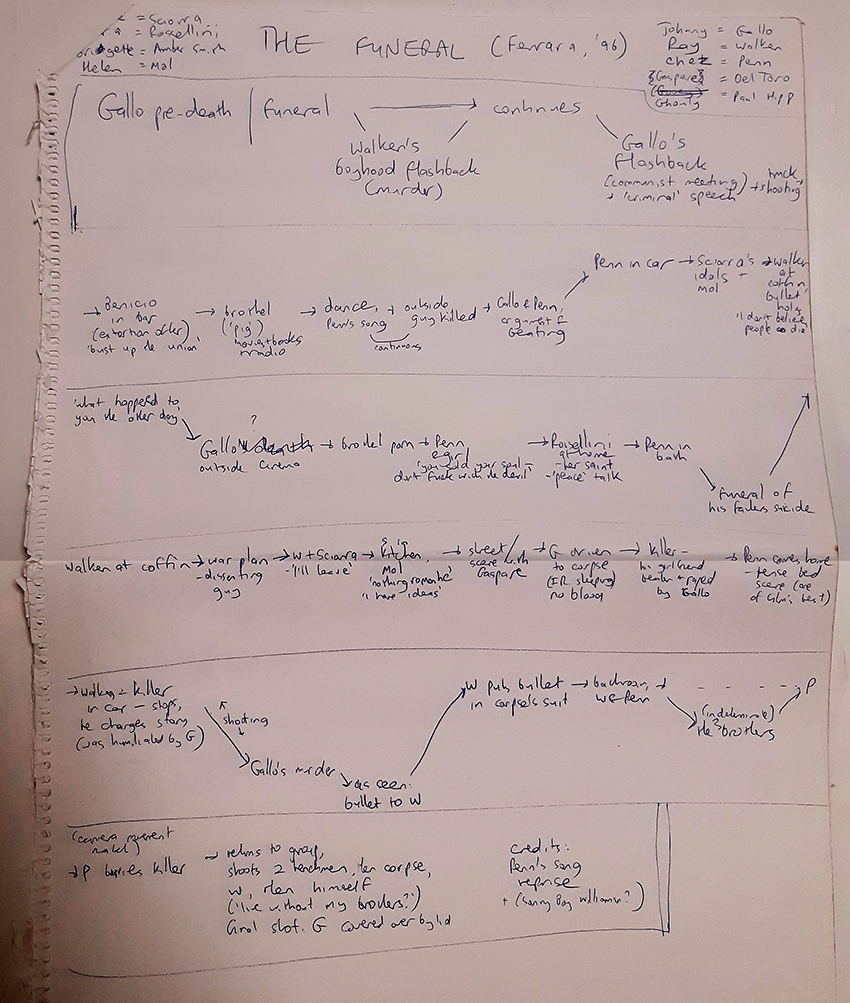 = Sciorra
= Rossellini
= Amber Smith
Helen = Mol
THE FUNERAL (Ferrara, '96)
Johnny = Gallo
Ray = Walken
Chez = Penn
{Gaspare} = Del Toro
Ghouly = Paul Hipp
Gallo pre-death | funeral
continues
Walken's
boyhood flashback
(murder)
Gallo's
flashback
(communist meeting)
+ 'criminal' speech
→ truck
shooting
→ Benicio
in bar
(extortion offer)
'bust up the union'
→ brothel
('pig')
movies + books
+ radio
→ dance,
Penn's song
→ outside,
guy killed
continuous
→ Gallo & Penn,
argument +
beating
Penn in car
→ Sciorra's
idols +
Mol
→ Walken
at
coffin
bullet
hole
'I don't believe
people so die'
'what happened to
you the other day'
?
Gallo's death
outside cinema
→ brothel porn
→ Penn
+ girl
'you sold your soul –
don't fuck with the devil'
→ Rossellini
at home
- her saint
- 'peace' talk
→ Penn in
bath
funeral of
his father's suicide
Walken at coffin
→ war plan
- dissenting
guy
→ W + Sciorra
- 'I'll leave'
→ S in
kitchen,
Mol
'nothing romantic'
'I have ideas'
→ street/
scene with
Gaspare
→ G driven
to corpse
(IR sleeping)
no blood
→ Killer –
his girlfriend
beaten + raped
by Gallo
→ Penn comes home
- tense bed
scene (one
of film's best)
→ Walken + killer
in car – stops,
he changes story
(was humiliated by G)
shooting
Gallo's murder
as seen:
bullet to W
W puts bullet
in corpse's suit
→ backroom,
W & Penn
(indeterminate)
the 3 brothers
P
(camera movement
→ P buries killer
→ returns to group,
shoots 2 henchmen, then corpse,
W, then himself
('live without my brothers?')
final shot: G covered over by lid
credits:
Penn's song
reprise
+ (Sonny Boy Williamson?)